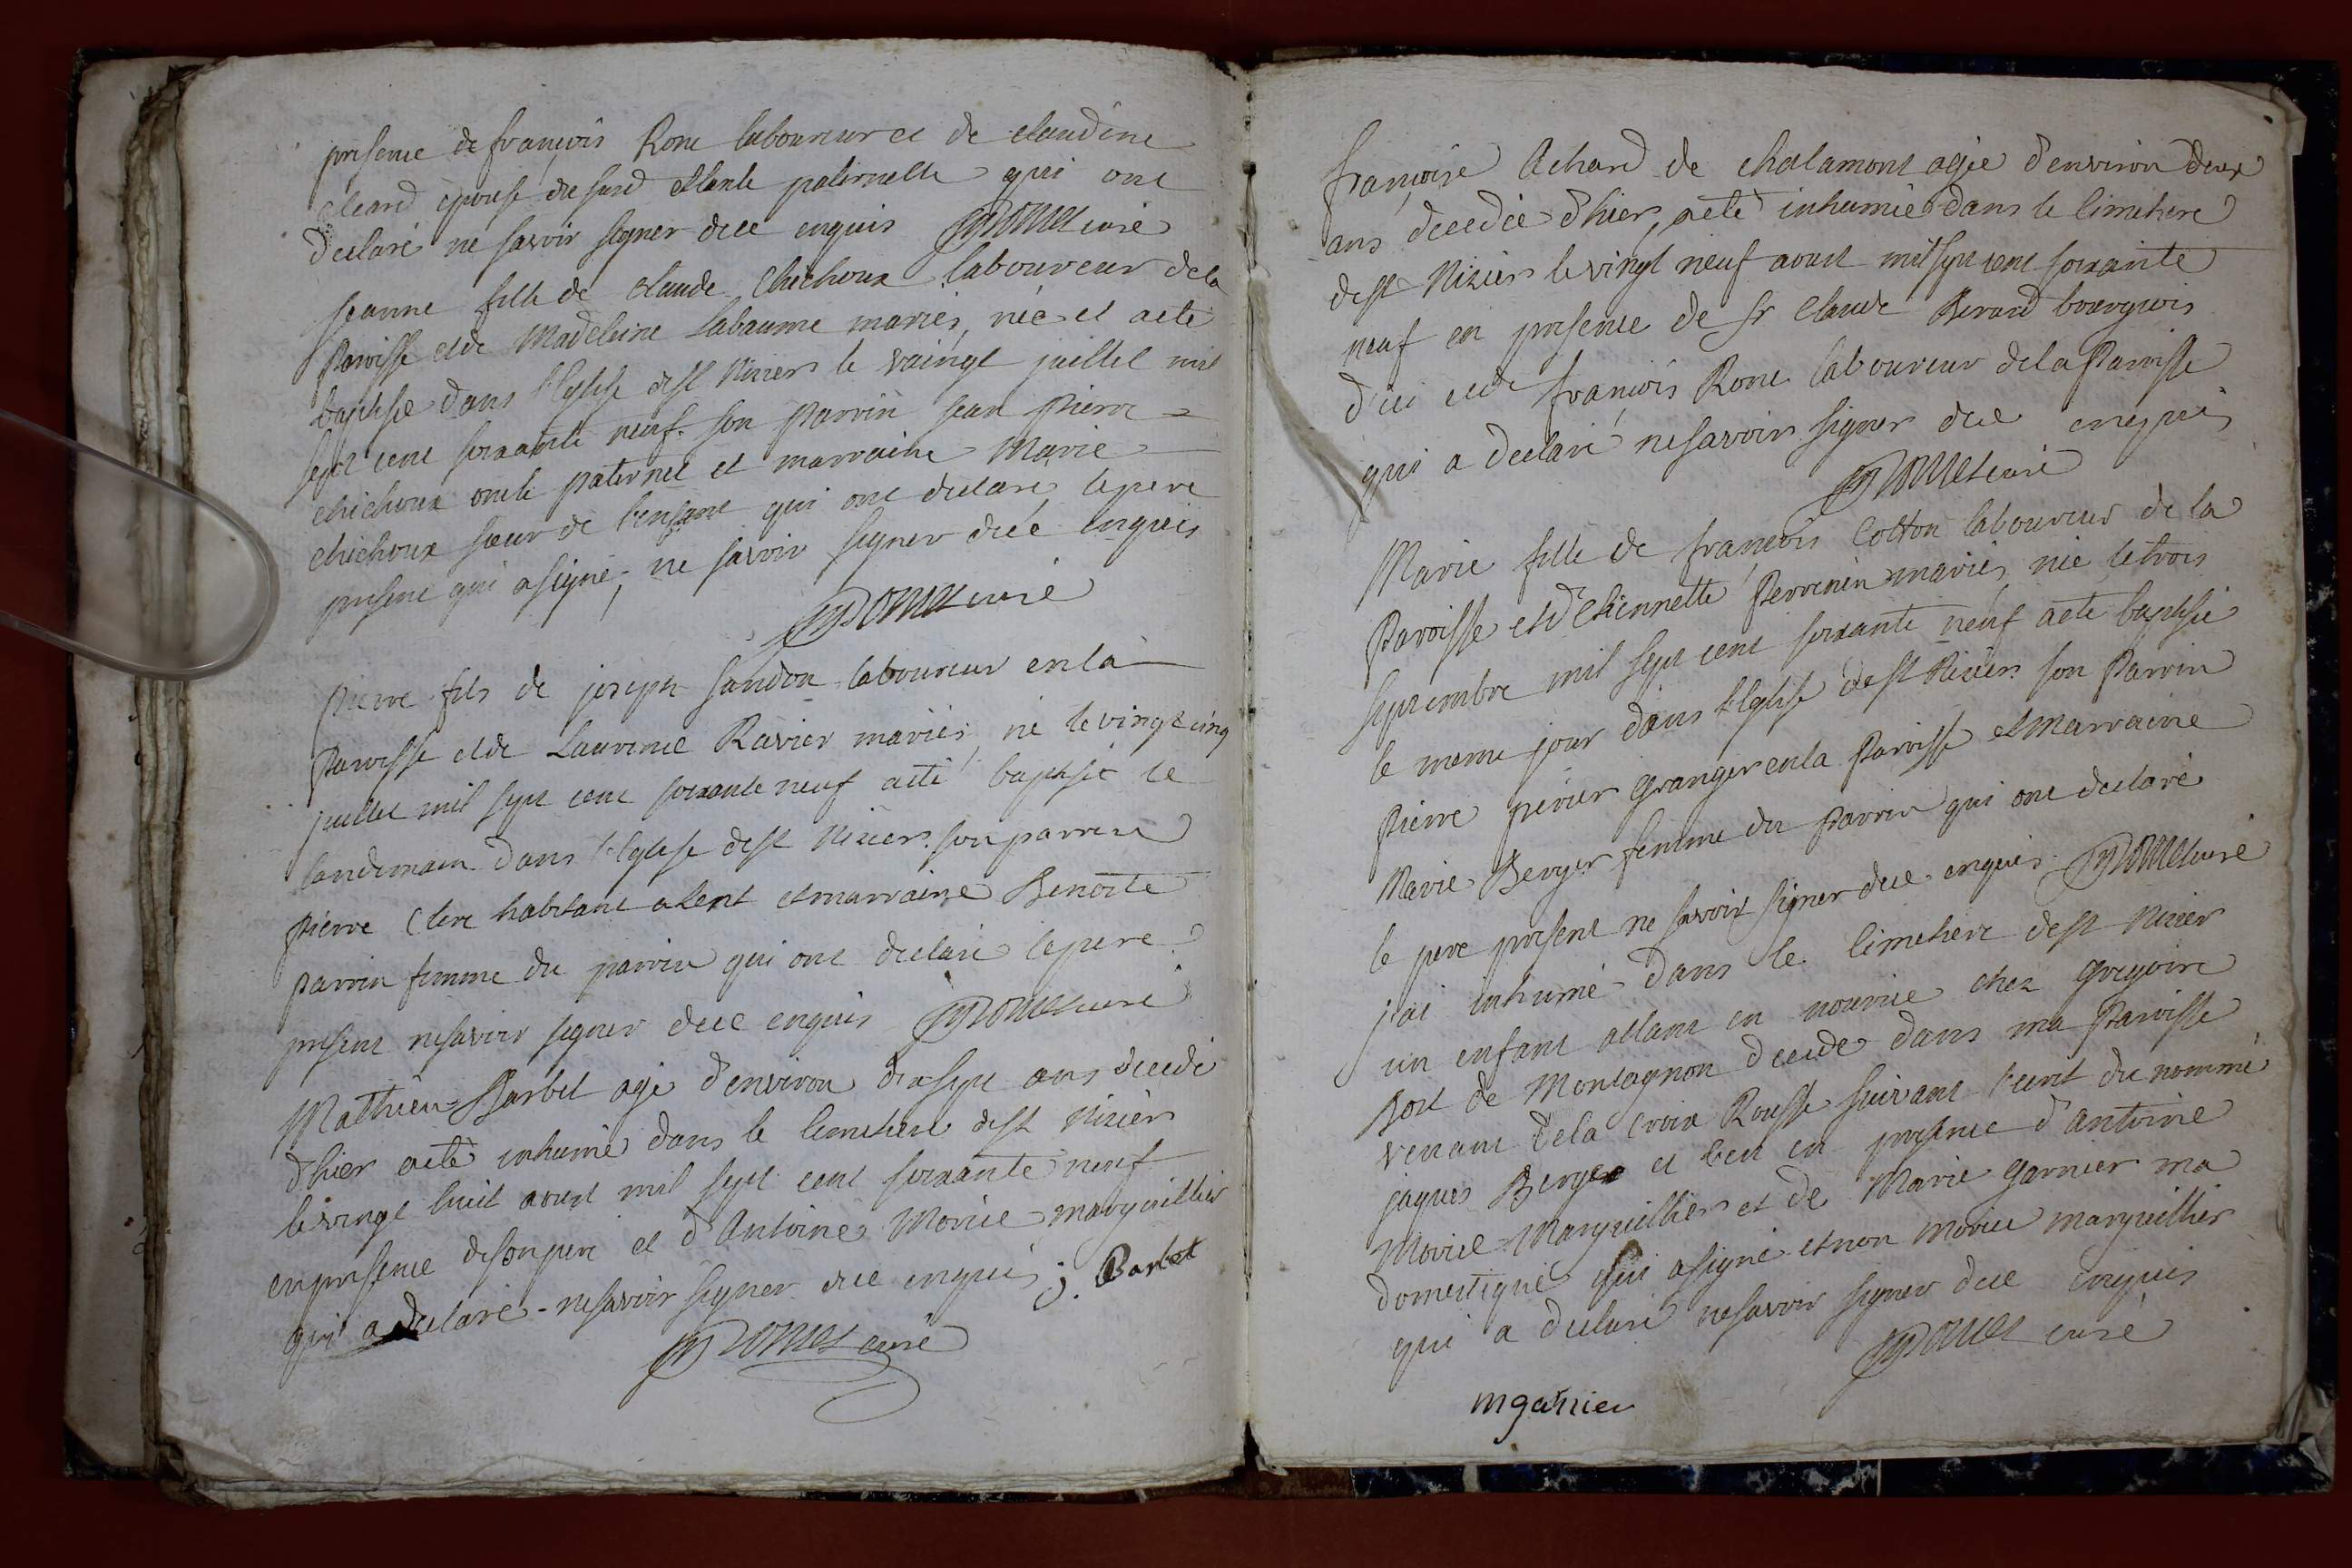 presence de françois Rone laboureur et de claudine
eleard épouse du surd et tante paternelle qui ont
declaré ne savoir signer dece enquis curé
jeanne fille de claude Chichoux laboureur dela
Paroisse et de Madeleine Labaume mariés, née et a eté
baptisée dans l'Eglise de st Nizier le vaingt juillet mil
sept cent soixante neuf. son parrin jean pierre =
chichoux oncle paternel et marraine Marie
chichoux sœur de l'enfant qui ont declaré le pere
present qui a signé, ne savoir signer dece enquis
curé
Pierre fils de joseph sandon laboureur en la
Paroisse et de Laurence Ravier mariés né le vingt cinq
juillet mil sept cent soixante neuf a eté baptisé le
landemain dans l'Eglise de st Nizier son parrin
pierre Clerc habitant a Lent et marraine Benoite
parrin femme du parrin qui ont declaré le pere
present ne savoir signer dece enquis curé
Mathieu Barbet agé d'environ dixsept ans decedé
d'hier a eté inhumé dans le Cimetiere de st Nizier
le vingt huit aoust mil sept cent soixante neuf
en presence de son pere et d'Antoine Morice marguillier
qui a declaré ne savoir signer dece enquis j. Barbet
curé
françoise Achard de chalamont agée d'environ deux
ans decedée d'hier, a eté inhumée dans le Cimetiere
de st Nizier le vingt neuf aoust mil sept cent soixante
neuf en presence de sr Claude Berard bourgeois
d'ici et de françois Rone laboureur de la Paroisse
qui a declaré ne savoir signer dece enquis
curé
Marie fille de françois Cotton laboureur de la
Paroisse et d'Etiennette Perrenin mariés née le trois
septembre mil sept cent soixante neuf a eté baptisée
le meme jour dans l'Eglise de st Nizier son Parrin
Pierre perier granger en la Paroisse et marraine
Marie Berger femme du Parrin qui ont declaré
le pere present ne savoir signer dece enquis curé
j'ai inhumé dans le Cimetiere de st Nizier
un enfant allant en nourice chez gregoire
Bost de Montagnon decede dans ma Paroisse
venant de la Croix Rousse suivant l'ecrit du nommé
jaques Berger et ce en presence d'antoine
Morice Marguillier et de Marie garnier ma
domestique qui a signé et non morice marguillier
qui a declaré ne savoir signer dece enquis
curé
mgarnier